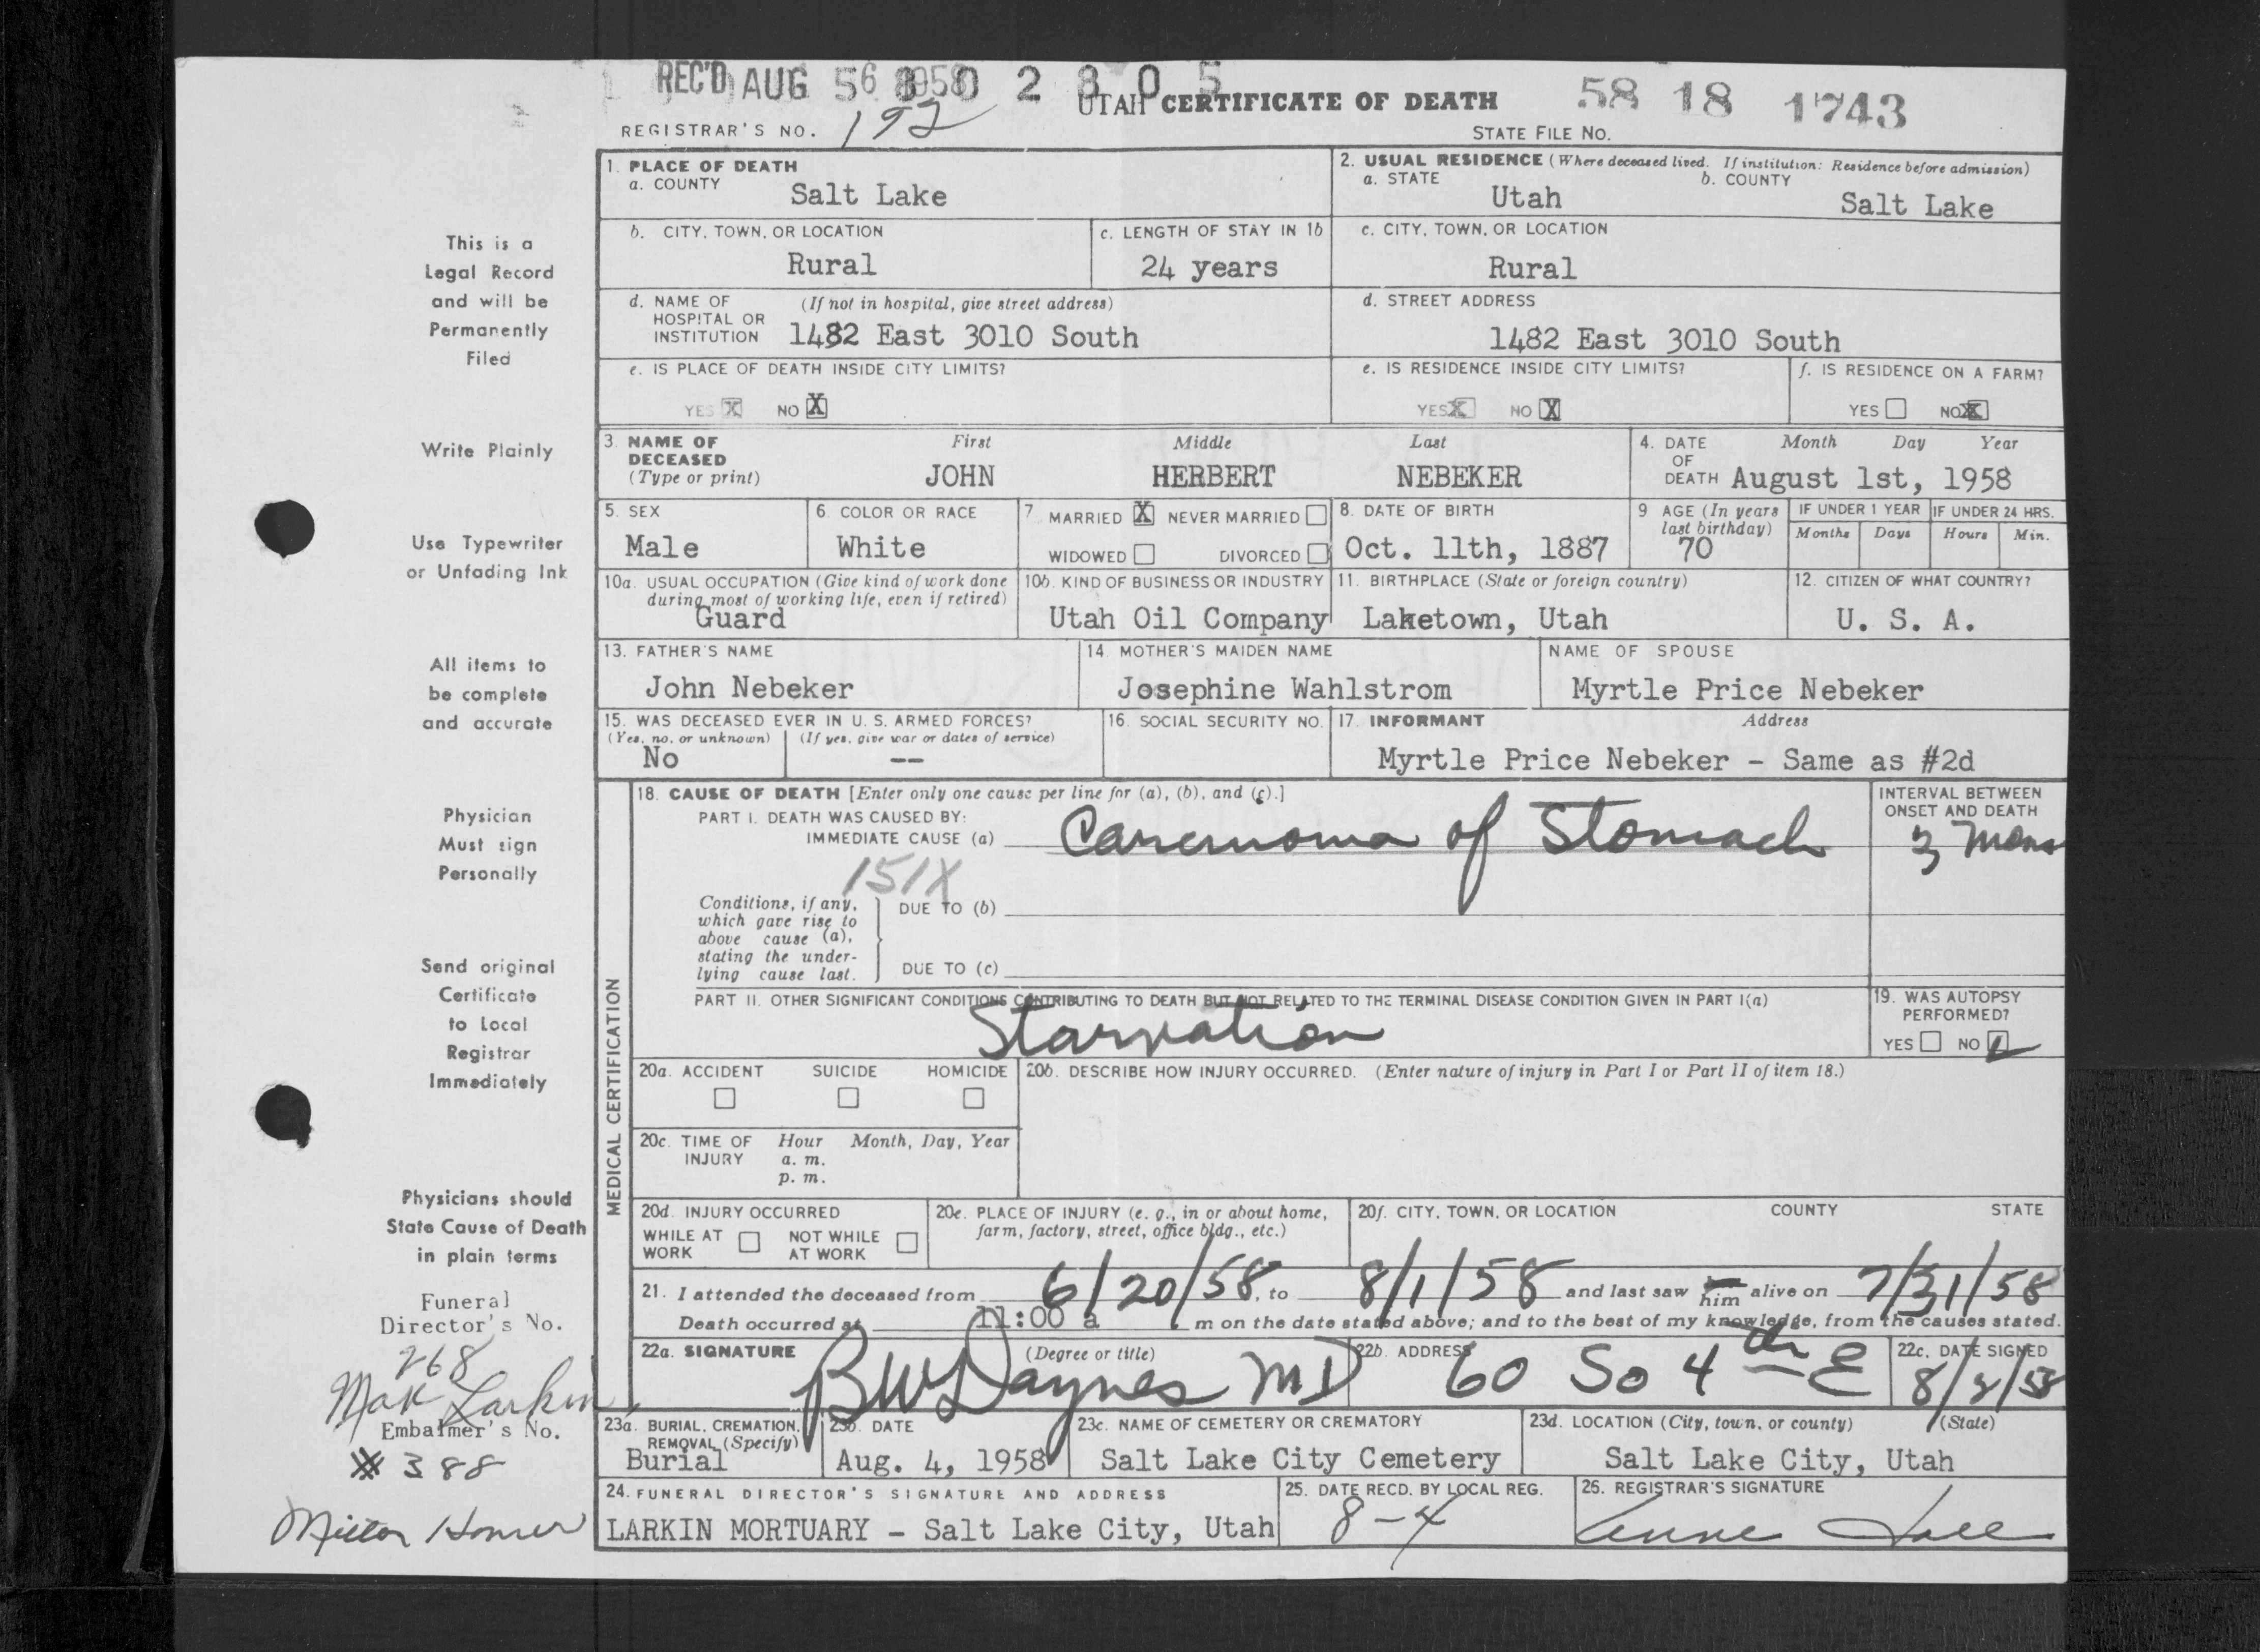 REC'D AUG 5 1958
UTAH CERTIFICATE OF DEATH 58 18 1743
REGISTRAR'S NO. 192 STATE FILE NO.
1. PLACE OF DEATH 2. USUAL RESIDENCE (Where deceased lived. If institution: Residence before admission)
a. COUNTY Salt Lake a. STATE Utah b. COUNTY Salt Lake
b. CITY, TOWN, OR LOCATION Rural c. LENGTH OF STAY IN 1b 24 years c. CITY, TOWN, OR LOCATION Rural
d. NAME OF HOSPITAL OR INSTITUTION (If not in hospital, give street address) 1482 East 3010 South d. STREET ADDRESS 1482 East 3010 South
e. IS PLACE OF DEATH INSIDE CITY LIMITS? e. IS RESIDENCE INSIDE CITY LIMITS? f. IS RESIDENCE ON A FARM?
YES X NO X YES X NO X YES NO X
3. NAME OF DECEASED (Type or print) First Middle Last 4. DATE OF DEATH Month Day Year
JOHN HERBERT NEBEKER August 1st, 1958
5. SEX 6. COLOR OR RACE 7. MARRIED X NEVER MARRIED 8. DATE OF BIRTH 9 AGE (In years last birthday) IF UNDER 1 YEAR IF UNDER 24 HRS.
Months Days Hours Min.
Male White WIDOWED DIVORCED Oct. 11th, 1887 70
10a. USUAL OCCUPATION (Give kind of work done during most of working life, even if retired) 10b. KIND OF BUSINESS OR INDUSTRY 11. BIRTHPLACE (State or foreign country) 12. CITIZEN OF WHAT COUNTRY?
Guard Utah Oil Company Laketown, Utah U. S. A.
13. FATHER'S NAME 14. MOTHER'S MAIDEN NAME NAME OF SPOUSE
John Nebeker Josephine Wahlstrom Myrtle Price Nebeker
15. WAS DECEASED EVER IN U. S. ARMED FORCES? 16. SOCIAL SECURITY NO. 17. INFORMANT Address
(Yes, no, or unknown) (If yes, give war or dates of service)
No -- Myrtle Price Nebeker - Same as #2d
MEDICAL CERTIFICATION
18. CAUSE OF DEATH [Enter only one cause per line for (a), (b), and (c).] INTERVAL BETWEEN ONSET AND DEATH
PART I. DEATH WAS CAUSED BY:
IMMEDIATE CAUSE (a) Carcinoma of Stomach 3 Mons
151X
Conditions, if any, which gave rise to above cause (a), stating the underlying cause last.
DUE TO (b)
DUE TO (c)
PART II. OTHER SIGNIFICANT CONDITIONS CONTRIBUTING TO DEATH BUT NOT RELATED TO THE TERMINAL DISEASE CONDITION GIVEN IN PART I(a) 19. WAS AUTOPSY PERFORMED?
Starvation YES NO
20a. ACCIDENT SUICIDE HOMICIDE 20b. DESCRIBE HOW INJURY OCCURRED. (Enter nature of injury in Part I or Part II of item 18.)
20c. TIME OF INJURY Hour Month, Day, Year
a. m.
p. m.
20d. INJURY OCCURRED 20e. PLACE OF INJURY (e. g., in or about home, farm, factory, street, office bldg., etc.) 20f. CITY, TOWN, OR LOCATION COUNTY STATE
WHILE AT WORK NOT WHILE AT WORK
21. I attended the deceased from 6/20/58, to 8/1/58 and last saw him alive on 7/31/58
Death occurred at 11:00 a m on the date stated above; and to the best of my knowledge, from the causes stated.
22a. SIGNATURE (Degree or title) 22b. ADDRESS 22c. DATE SIGNED
BW Daynes MD 60 So 4th E
23a. BURIAL, CREMATION, REMOVAL (Specify) 23b. DATE 23c. NAME OF CEMETERY OR CREMATORY 23d. LOCATION (City, town, or county) (State)
Burial Aug. 4, 1958 Salt Lake City Cemetery Salt Lake City, Utah
24. FUNERAL DIRECTOR'S SIGNATURE AND ADDRESS 25. DATE RECD. BY LOCAL REG. 26. REGISTRAR'S SIGNATURE
LARKIN MORTUARY - Salt Lake City, Utah 8-4
This is a
Legal Record
and will be
Permanently
Filed
Write Plainly
Use Typewriter
or Unfading Ink
All items to
be complete
and accurate
Physician
Must sign
Personally
Send original
Certificate
to Local
Registrar
Immediately
Physicians should
State Cause of Death
in plain terms
Funeral
Director's No.
268
Larkin
Embalmer's No.
# 388